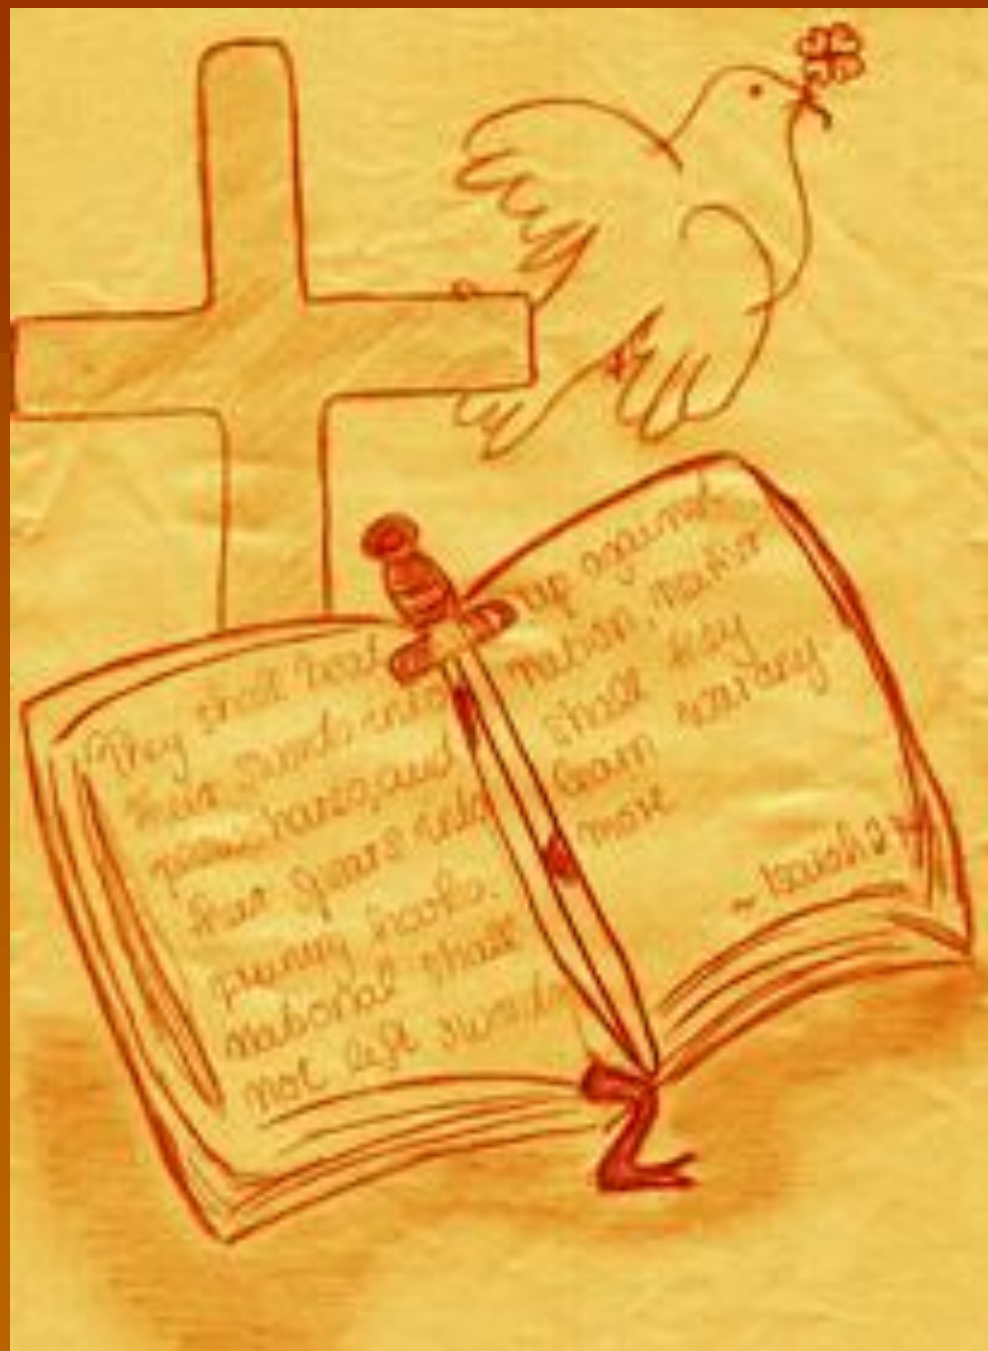 "They shall beat
their swords into
and
their spears into
pruning hooks.
national shall
not lift swords
up against
nation, neither
shall they
learn war any
more
~ Isaiah 2